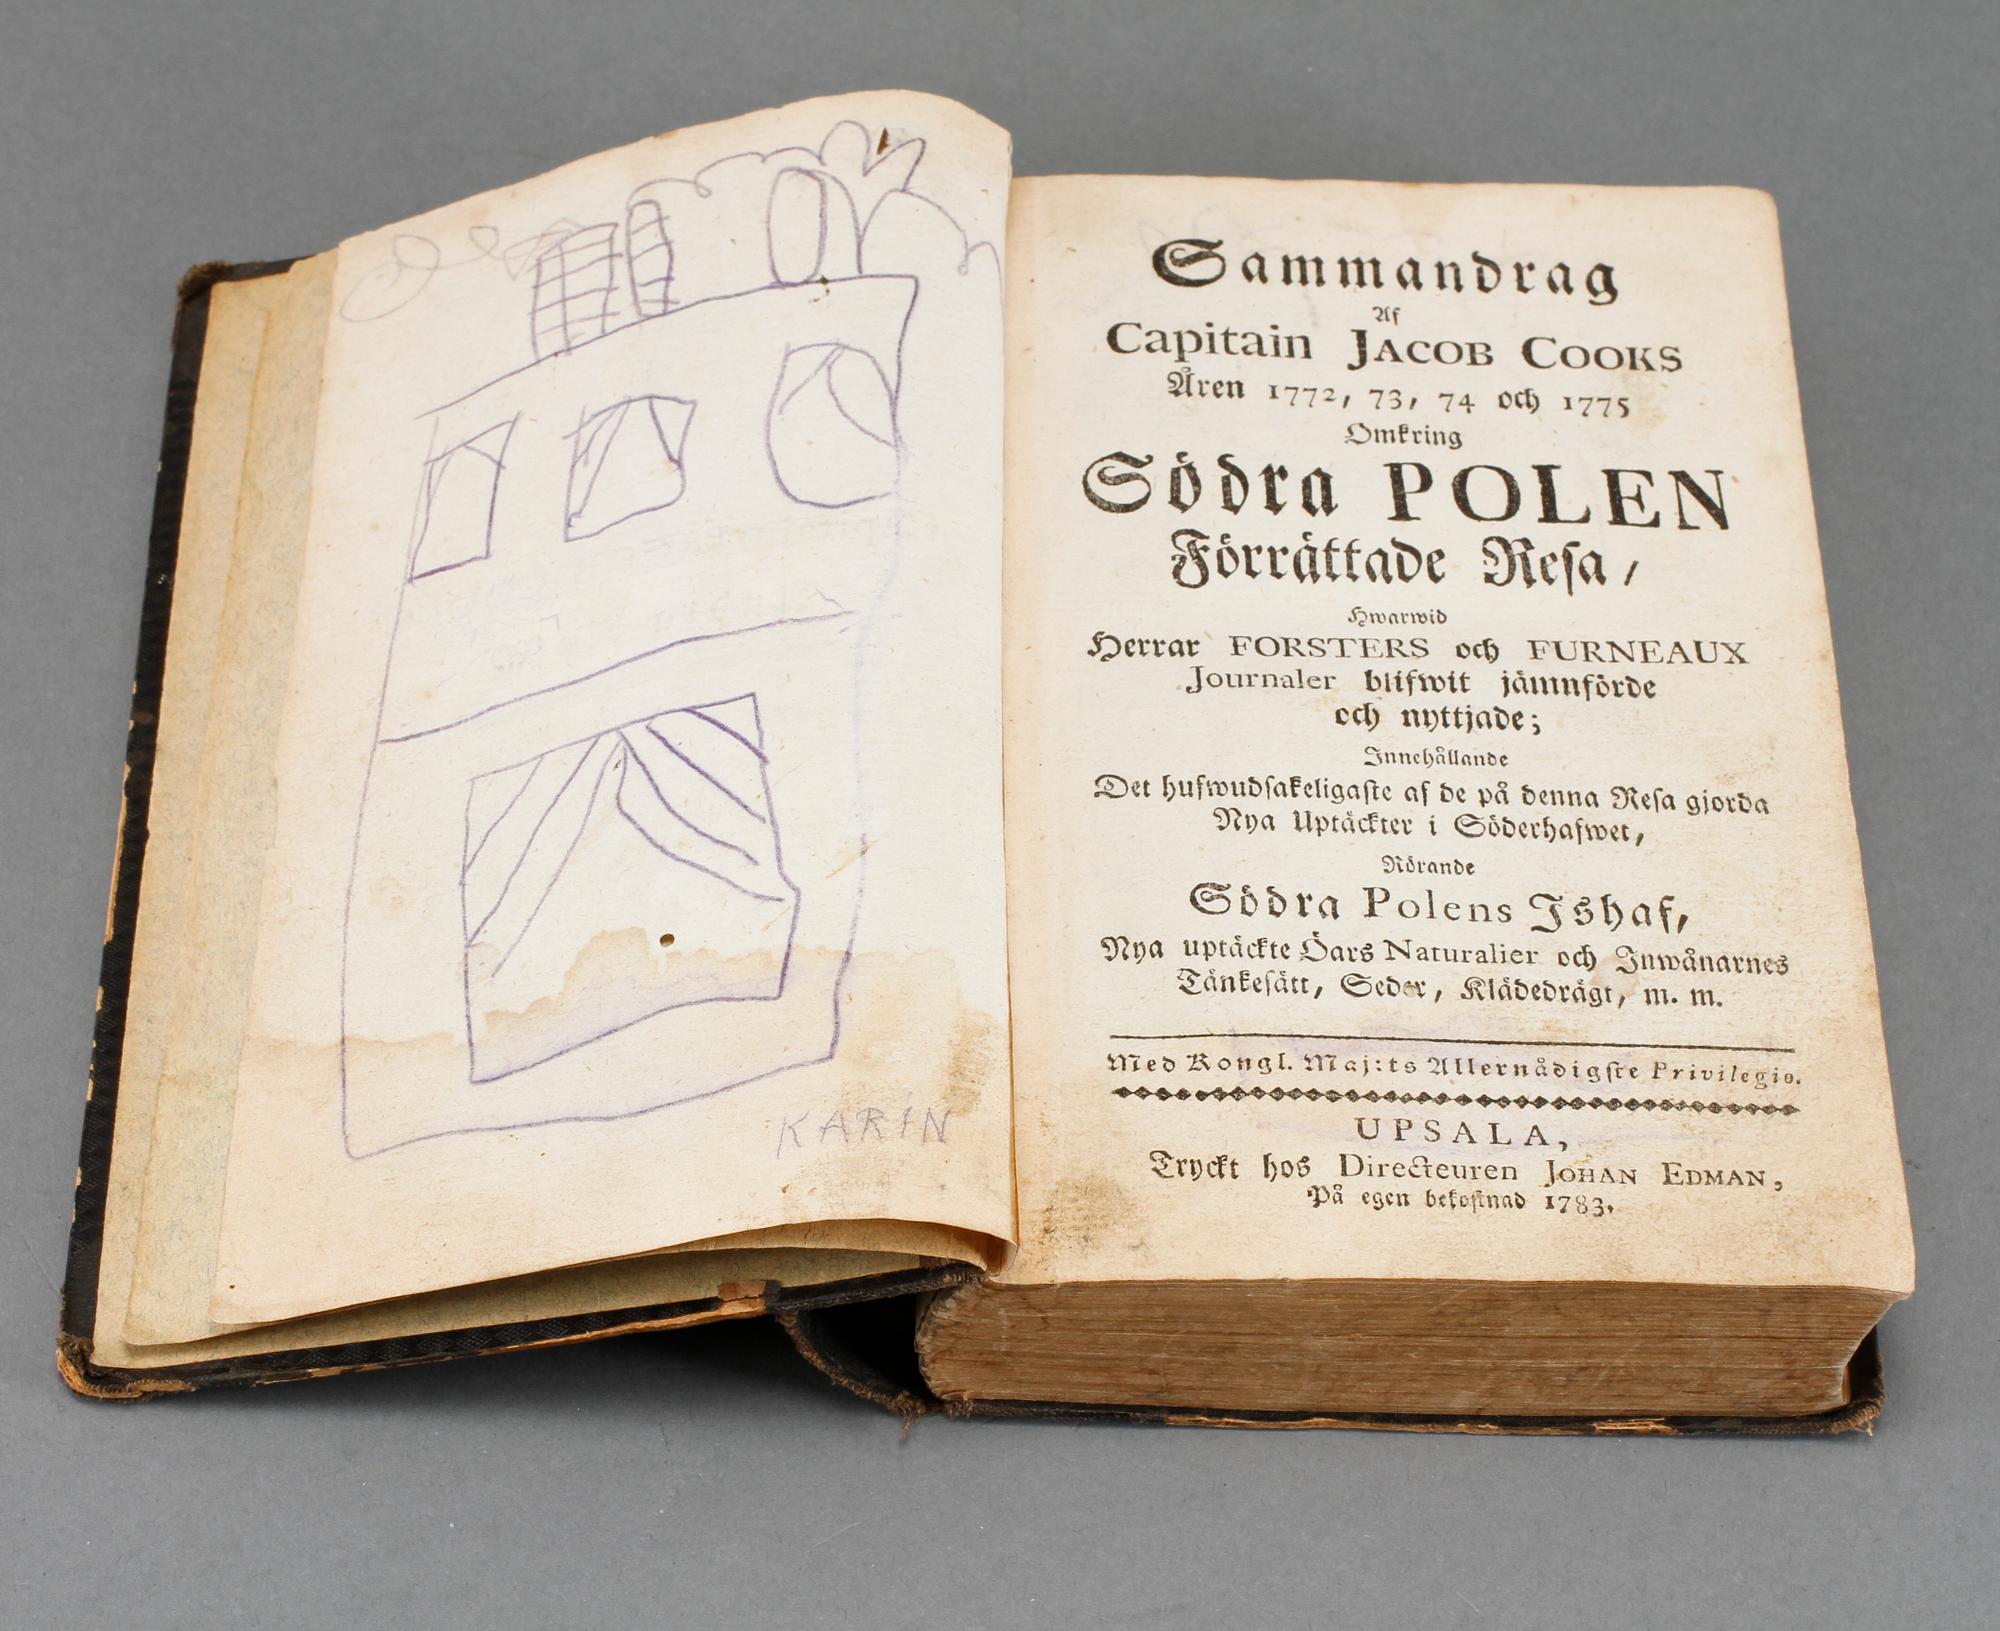 KARIN
Sammandrag
Af
Capitain JACOB COOKS
Åren 1772, 73, 74 och 1775
Omkring
Södra POLEN
Förrättade Resa,
Hwarwid
Herrar FORSTERS och FURNEAUX
Journaler blifwit jämnförde
och nyttjade;
Innehållande
Det hufwudsakeligaste af de på denna Resa gjorda
Nya Uptäckter i Söderhafwet,
Rörande
Södra Polens Ishaf,
Nya uptäckte Öars Naturalier och Inwånarnes
Tänkesätt, Seder, Klädedrägt, m. m.
Med Kongl. Maj:ts Allernådigste Privilegio.
UPSALA,
Tryckt hos Directeuren JOHAN EDMAN,
På egen bekostnad 1783.